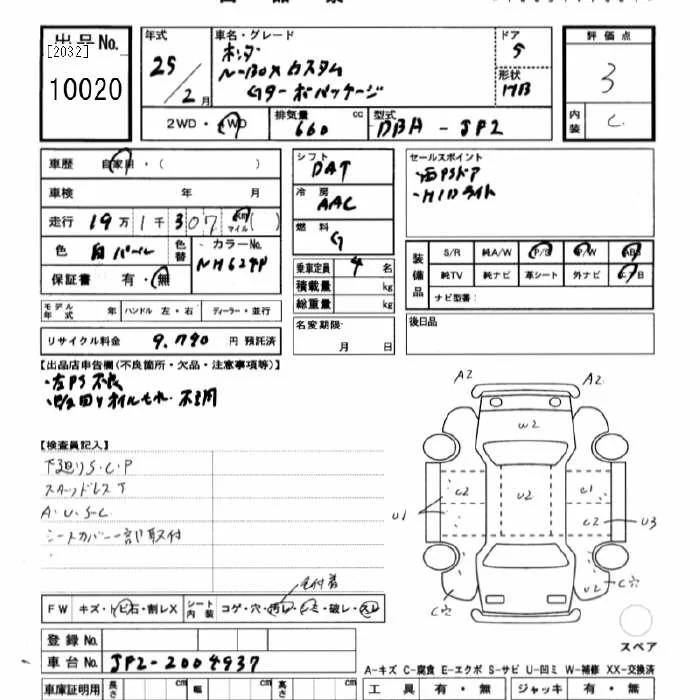 出品No.
[2032]
10020
年式
25/2月
車名・グレード
ホンダ
N-BOXカスタム
Gターボパッケージ
ドア
5
形状
HB
評価点
3
内装
C
2WD・4WD
排気量
660 cc
型式
DBA-JP2
車歴 自家用・( )
車検 年 月
走行 19万1千307 km マイル ( )
色 白パール
色替
カラーNo.
NH624P
保証書 有・無
モデル年式 年 ハンドル 左・右 ディーラー・並行
リサイクル料金 9,790 円 預託済
シフト
DAT
冷房
AAC
燃料
G
乗車定員 4 名
積載量 kg
総重量 kg
名変期限
月 日
セールスポイント
・両PSドア
・HIDライト
装備品
S/R 純A/W P/S P/W ABS
純TV 純ナビ 革シート 外ナビ A/B
ナビ型番:
後日品
【出品店申告欄(不良箇所・欠品・注意事項等)】
・左PS不良
オイルもれ
【検査員記入】
下廻りS・C・P
スタッドレスT
A・U・S・C
シートカバー一部取付
毛付着
FW キズ・トビ石・割レX
シート内装 コゲ・穴・汚レ・シミ・破レ・スレ
登録No.
車台No. JP2-2004937
車庫証明用 長さ cm 幅 cm 高さ cm
A2 A2
W2
C2 U2 C1
U1 C2 U3
U2
C穴 C穴
スペア
A-キズ C-腐食 E-エクボ S-サビ U-凹ミ W-補修 XX-交換済
工具 有・無 ジャッキ 有・無